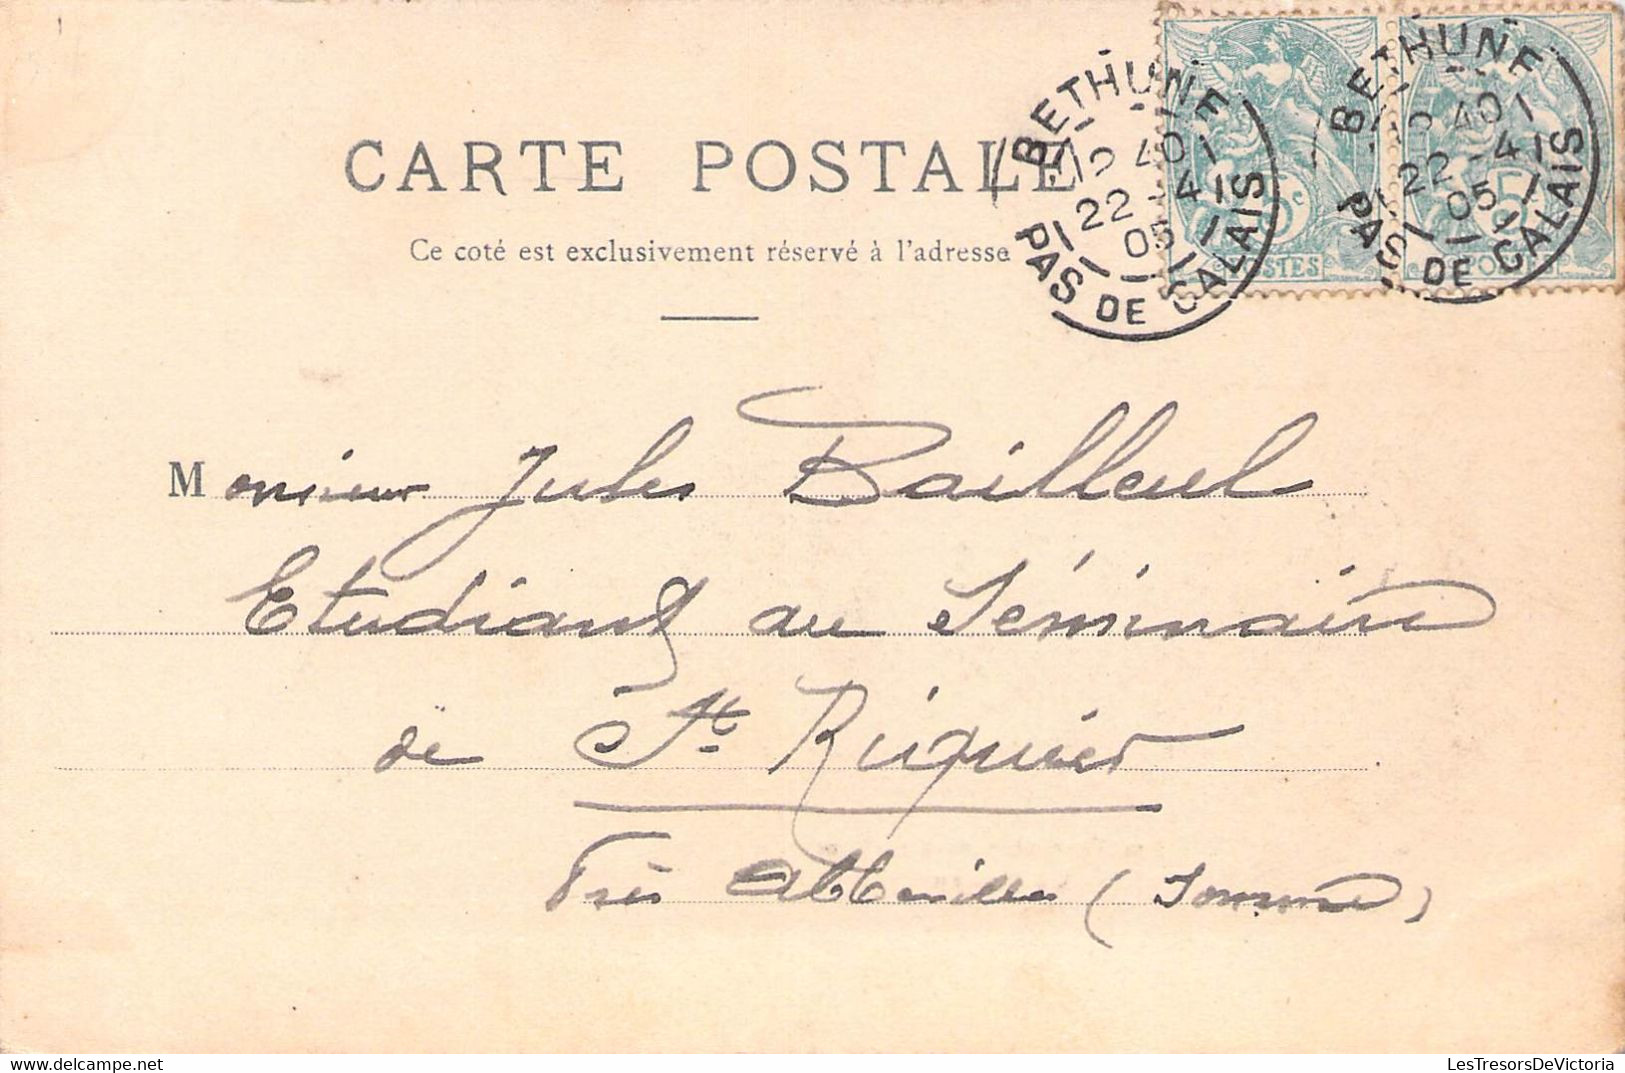 CARTE POSTALE
Ce coté est exclusivement réservé à l'adresse
BETHUNE
12 40
22 - 4
05
PAS DE CALAIS
BETHUNE
12 40
22 - 4
05
PAS DE CALAIS
5c
POSTES
5
POSTES
Monsieur Jules Bailleul
Etudiant au Séminaire
de St Riquier
Près Abbeville (Somme)
Delcampe.net
LesTresorsDeVictoria